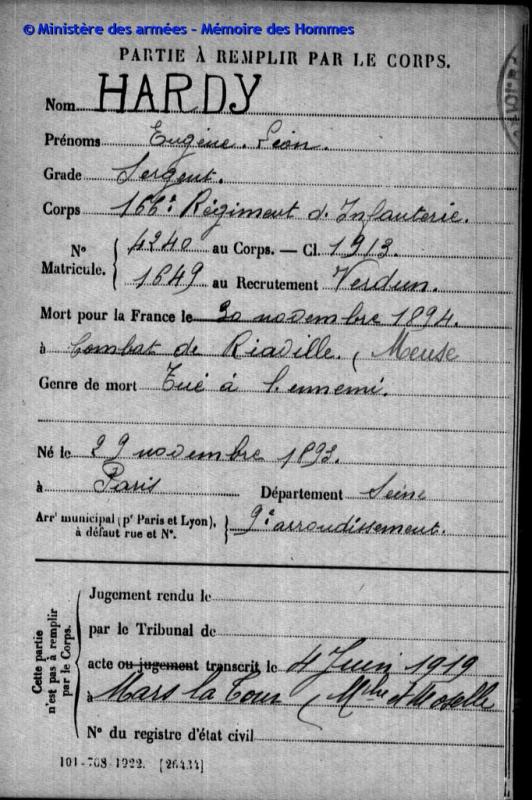 © Ministère des armées - Mémoire des Hommes
PARTIE À REMPLIR PAR LE CORPS.
Nom HARDY
Prénoms Eugène. Léon.
Grade Sergent.
Corps 166e Régiment d'Infanterie.
N° Matricule. { 4240 au Corps. — Cl. 1913.
1649 au Recrutement Verdun.
Mort pour la France le 30 novembre 1894.
à Combat de Riaville. (Meuse
Genre de mort Tué à l'ennemi.
Né le 29 novembre 1893.
à Paris Département Seine
Arrt municipal (pr Paris et Lyon), à défaut rue et N°. } 9e arrondissement.
Cette partie n'est pas à remplir par le Corps.
Jugement rendu le
par le Tribunal de
acte ou jugement transcrit le 4 Juin 1919
à Mars la Tour (Mthe et Moselle
N° du registre d'état civil
101-708-1922. [26434]